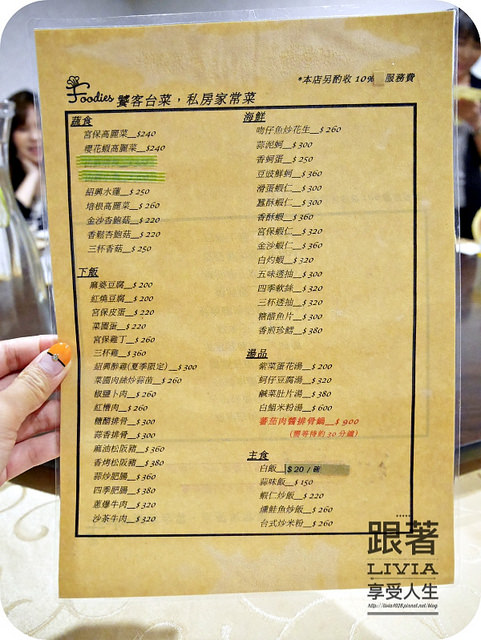 Foodies 饕客台菜，私房家常菜
*本店另酌收 10% 服務費
蔬食
宮保高麗菜__$240
櫻花蝦高麗菜__$240
紹興水蓮__$250
培根高麗菜__$260
金沙杏鮑菇__$220
香鬆杏鮑菇__$220
三杯香菇__$250
下飯
麻婆豆腐__$200
紅燒豆腐__$200
宮保皮蛋__$220
菜圃蛋__$220
宮保雞丁__$260
三杯雞__$360
紹興醉雞(夏季限定)__$300
菜圃肉絲炒蒜苗__$260
椒鹽卜肉__$260
紅糟肉__$260
糖醋排骨__$300
蒜香排骨__$300
麻油松阪豬__$360
香烤松阪豬__$380
蒜炒肥腸__$360
四季肥腸__$380
蔥爆牛肉__$320
沙茶牛肉__$320
海鮮
吻仔魚炒花生__$260
蒜泥蚵__$300
香蚵蛋__$250
豆豉鮮蚵__$360
滑蛋蝦仁__$300
香酥蝦__$360
宮保蝦仁__$320
金沙蝦仁__$360
白灼蝦__$320
五味透抽__$300
四季軟絲__$320
三杯透抽__$320
糖醋魚片__$300
香煎珍鱈__$380
湯品
紫菜蛋花湯__$200
蚵仔豆腐湯__$320
鹹菜肚片湯__$380
白鯧米粉湯__$600
蕃茄肉醬排骨鍋__$900
(需等待約30分鐘)
主食
白飯__$20/碗
蒜味飯__$150
蝦仁炒飯__$220
燻鮭魚炒飯__$260
台式炒米粉__$260
跟著
LIVIA
享受人生
http://livia1028.pixnet.net/blog